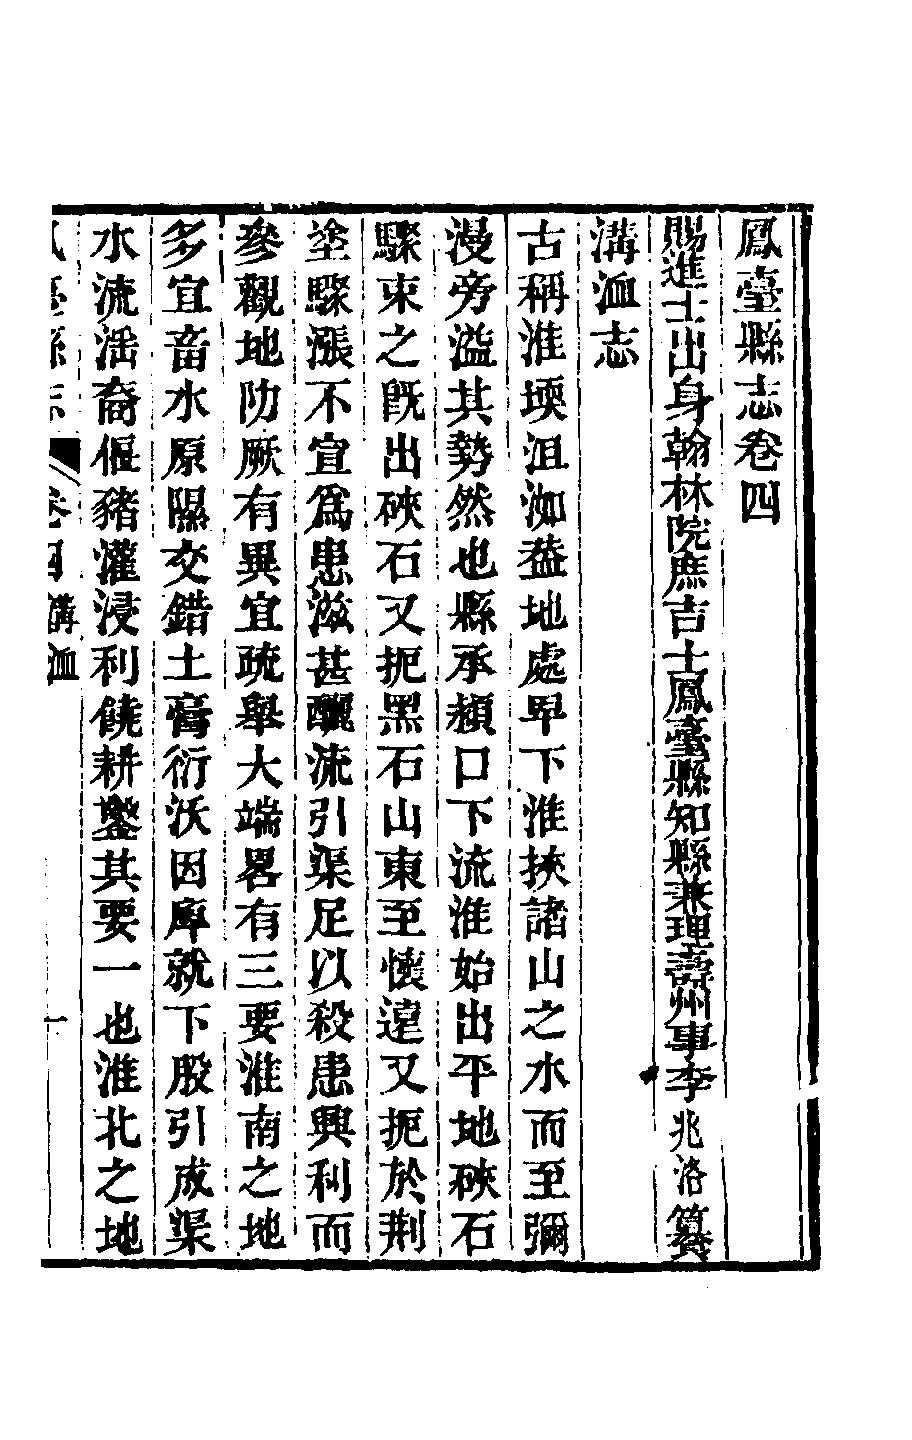 鳳臺縣志卷四
賜進士出身翰林院庶吉士鳳臺縣知縣兼理壽州事李兆洛纂
溝洫志
古稱淮堧沮洳葢地處卑下淮挾諸山之水而至彌
漫旁溢其勢然也縣承潁口下流淮始出平地硤石
驟束之旣出硤石又扼黑石山東至懷遠又扼於荆
塗驟漲不宣爲患滋甚釃流引渠足以殺患興利而
參觀地阞厥有異宜疏舉大端畧有三要淮南之地
多宜畜水原隰交錯土膏衍沃因庳就下股引成渠
水流㴞裔偃豬灌浸利饒耕鑿其要一也淮北之地
臺縣志 卷四 溝洫 一